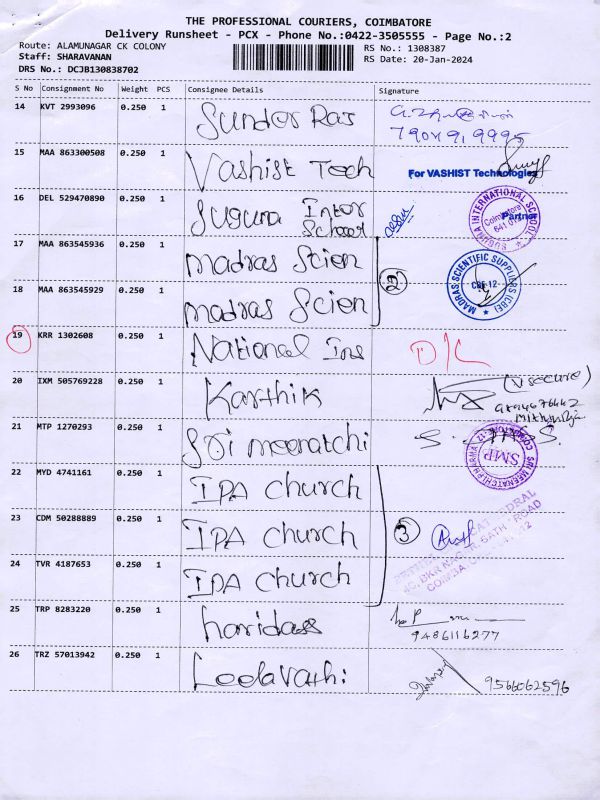 THE PROFESSIONAL COURIERS, COIMBATORE
Delivery Runsheet - PCX - Phone No.:0422-3505555 - Page No.:2
Route: ALAMUNAGAR CK COLONY
RS No.: 1308387
Staff: SHARAVANAN
RS Date: 20-Jan-2024
DRS No.: DCJB130838702
S No Consignment No Weight PCS Consignee Details Signature
14 KVT 2993096 0.250 1 Sunder Raj
15 MAA 863300508 0.250 1 Vashist Tech For VASHIST Technologies
Partner
16 DEL 529470890 0.250 1 Suguna Inter School SUGUNA INTERNATIONAL SCHOOL Coimbatore
17 MAA 863545936 0.250 1 Madras Scien
2
18 MAA 863545929 0.250 1 Madras Scien MADRAS SCIENTIFIC SUPPLIERS (CBE) CBE-12
19 KRR 1302608 0.250 1 National Ins D/L
20 IXM 505769228 0.250 1 Karthik (V secure)
21 MTP 1270293 0.250 1 Sri meenatchi SRI MEENATCHI PHARMA SMP
22 MYD 4741161 0.250 1 IPA church
23 CDM 50288889 0.250 1 IPA church 3
24 TVR 4187653 0.250 1 IPA church
25 TRP 8283220 0.250 1 haridass
9486116277
26 TRZ 57013942 0.250 1 Leelavathi 9566062596